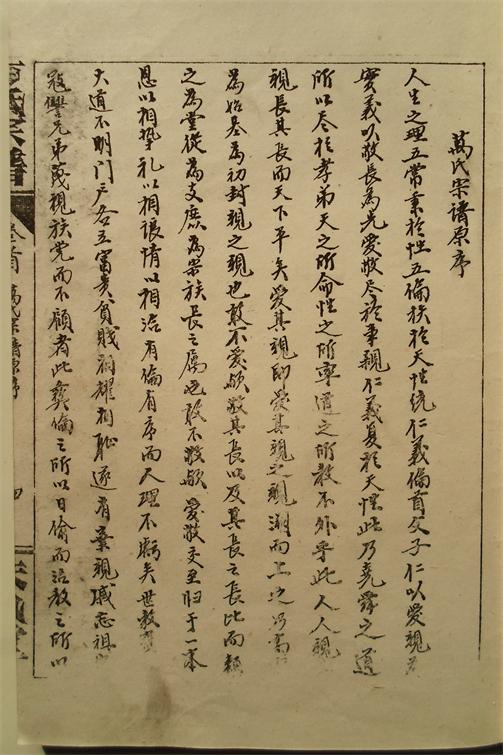 萬氏宗谱原序
人生之理五常秉於性五倫扶於天性統仁義倫首父子仁以愛親为
實義以敬長為先愛敬尽於事親仁義复於天性此乃堯舜之道
所以尽於孝弟天之所命性之所率道之所教不外乎此人人親
親長其長而天下平矣愛其親即愛其親之親溯而上之为高
為始基為初封親之親也敢不愛欤敬其長以及其長之長比而
之為堂從為支庶為宗族長之屬也敢不敬欤愛敬交至归于一本
恩以相挚礼以相接情以相洽有倫有序而人理不虧矣世教
大道不明门户各立富贵貧賤相耀相恥遂有棄親戚忘祖
寇讐兄弟蔑視族党而不顧者此彝倫之所以日偷而治教之所以
萬氏宗譜
卷首 萬氏宗譜原序
四